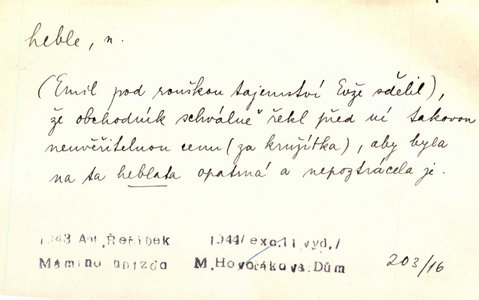 heble, n.
(Emil pod rouškou tajemství Evže sdělil),
že obchodník schválně řekl před ní takovou
neuvěřitelnou cenu (za kružítka), aby byla
na ta heblata opatrná a nepoztrácela je.
1943 Ant. Řeřábek 1944/ exc. 11 vyd./
Mámino hnízdo M. Hovorkova Dům 203/16